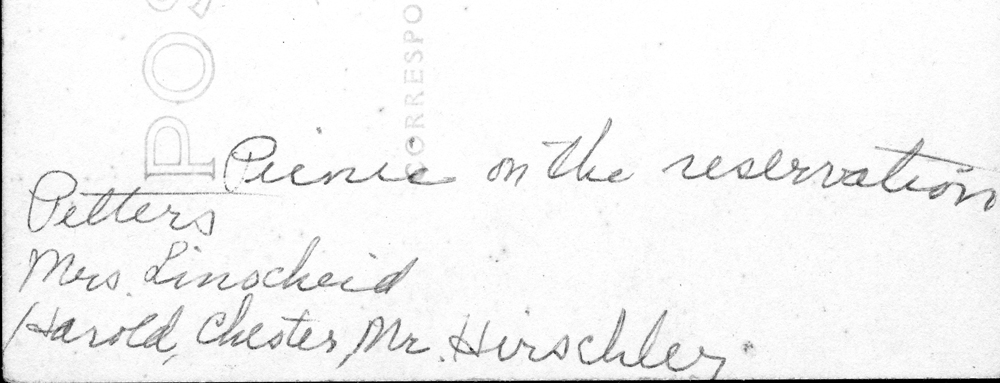 POS
CORRESPO
Picnic on the reservation
Petters
Mrs. Linscheid
Harold, Chester, Mr. Hirschler.